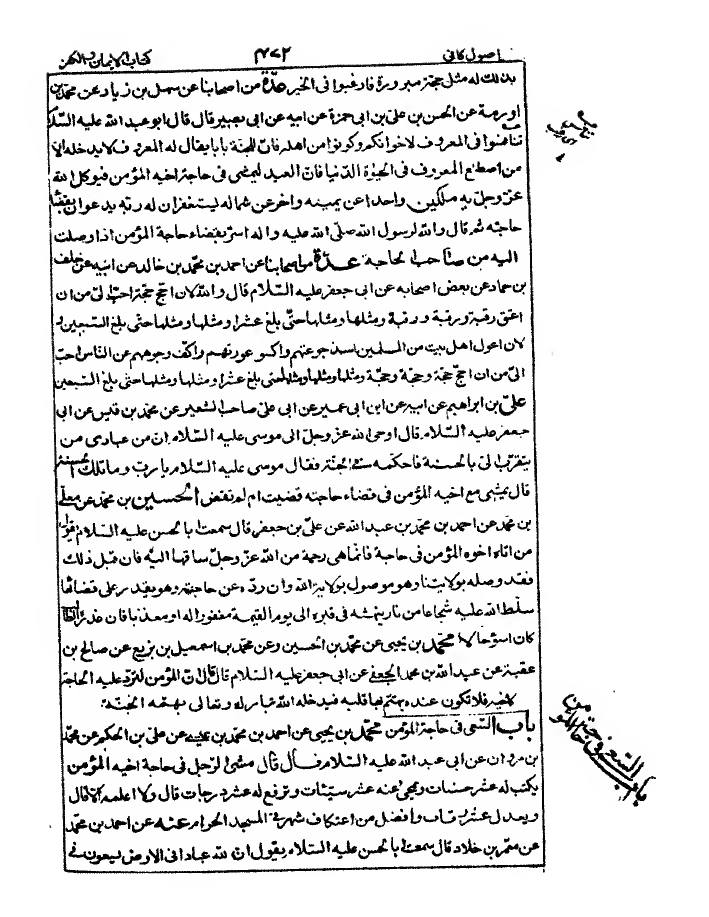 اصول كافى ٣٧٢ كتاب الايمان والكفر
بذلك له مثل حجّة مبرورة فارغبوا فى الخير عدّة من اصحابنا عن سهل بن زياد عن محمّد بن
اورمة عن الحسن بن علىّ بن ابى حمزة عن ابيه عن ابى بصير قال قال ابو عبد الله عليه السّلام
تنافسوا فى المعروف لاخوانكم وكونوا من اهله فانّ للجنّة بابا يقال له المعروف لا يدخله الّا
من اصطنع المعروف فى الحيوة الدّنيا فانّ العبد ليمشى فى حاجة اخيه المؤمن فيوكّل الله
عزّ وجلّ به ملكين واحدا عن يمينه واخر عن شماله يستغفران له ربّه يدعوان بقضاء
حاجته ثمّ قال والله لرسول الله صلّى الله عليه واله اسرّ بقضاء حاجة المؤمن اذا وصلت
اليه من صاحب الحاجة عدّة من اصحابنا عن احمد بن محمّد بن خالد عن ابيه عن خلف
بن حمّاد عن بعض اصحابه عن ابى جعفر عليه السّلام قال والله لان احجّ حجّة احبّ الىّ من ان
اعتق رقبة ورقبة ورقبة ومثلها ومثلها حتّى بلغ عشرا ومثلها ومثلها حتّى بلغ السّبعين و
لان اعول اهل بيت من المسلمين اسدّ جوعتهم واكسو عورتهم واكفّ وجوههم عن النّاس احبّ
الىّ من ان احجّ حجّة وحجّة وحجّة ومثلها ومثلها ومثلها حتى بلغ عشرا ومثلها ومثلها حتى بلغ السّبعين
علىّ بن ابراهيم عن ابيه عن ابن ابى عمير عن ابى علىّ صاحب الشّعير عن محمّد بن قيس عن ابى
جعفر عليه السّلام قال اوحى الله عزّ وجلّ الى موسى عليه السّلام انّ من عبادى من
يتقرّب الىّ بالحسنة فاحكّمه فى الجنّة فقال موسى عليه السّلام يا ربّ وما تلك الحسنة
قال يمشى مع اخيه المؤمن فى قضاء حاجته قضيت ام لم تقض الحسين بن محمّد عن معلّى
بن محمّد عن احمد بن محمّد بن عبد الله عن علىّ بن جعفر قال سمعت ابا الحسن عليه السّلام يقول
من اتاه اخوه المؤمن فى حاجة فانّما هى رحمة من الله عزّ وجلّ ساقها اليه فان قبل ذلك
فقد وصله بولايتنا وهو موصول بولاية الله وان ردّه عن حاجته وهو يقدر على قضائها
سلّط الله عليه شجاعا من نار ينهشه فى قبره الى يوم القيمة مغفورا له او معذّبا فان عذره الطّالب
كان اسوء حالا محمّد بن يحيى عن محمّد بن الحسين عن محمّد بن اسمعيل بن بزيع عن صالح بن
عقبة عن عبد الله بن محمّد الجعفى عن ابى جعفر عليه السّلام قال قال انّ المؤمن لترد عليه الحاجة
لاخيه فلا تكون عنده يهتمّ بها قلبه فيدخله الله تبارك وتعالى بهمّه الجنّة
باب السّعى فى حاجة المؤمن محمّد بن يحيى عن احمد بن محمّد بن عيسى عن علىّ بن الحكم عن محمّد
بن مروان عن ابى عبد الله عليه السّلام قال قال مشى الرّجل فى حاجة اخيه المؤمن
يكتب له عشر حسنات ويمحى عنه عشر سيّئات وترفع له عشر درجات قال ولا اعلمه الّا قال
ويعدل عشر رقاب وافضل من اعتكاف شهر فى المسجد الحرام عنه عن احمد بن محمّد
عن معمّر بن خلّاد قال سمعت ابا الحسن عليه السّلام يقول انّ لله عبادا فى الارض يسعون فى
باب السعى فى حاجة المؤمن